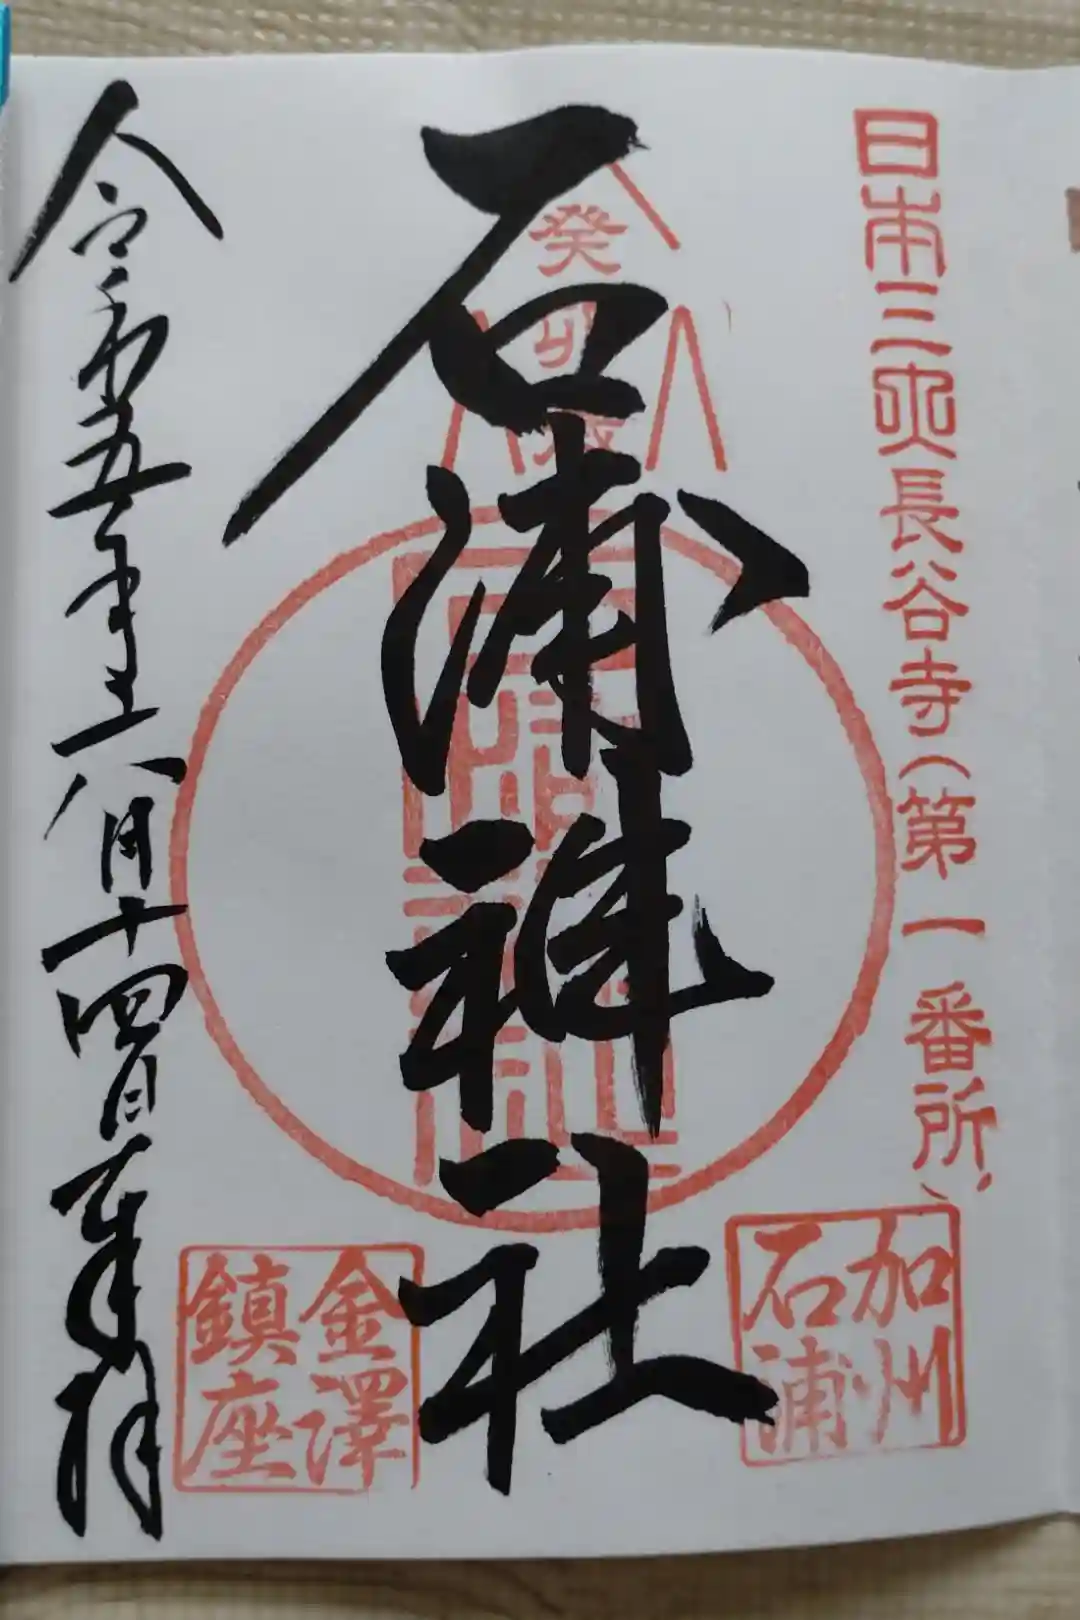 日本三大長谷寺(第一番所、
加州
石浦
石浦神社
癸卯歳
金澤
鎮座
令和五年八月十四日奉拝